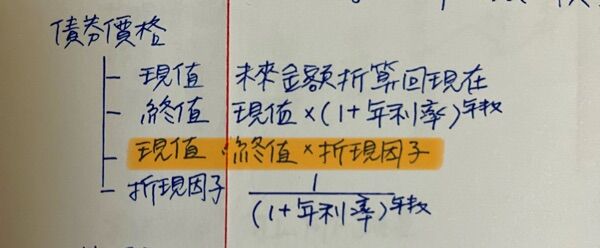 債券價格
現值 未來金額折算回現在
終值 現值×(1+年利率)年数
現值 終值×折現因子
折現因子 1
(1+年利率)年数